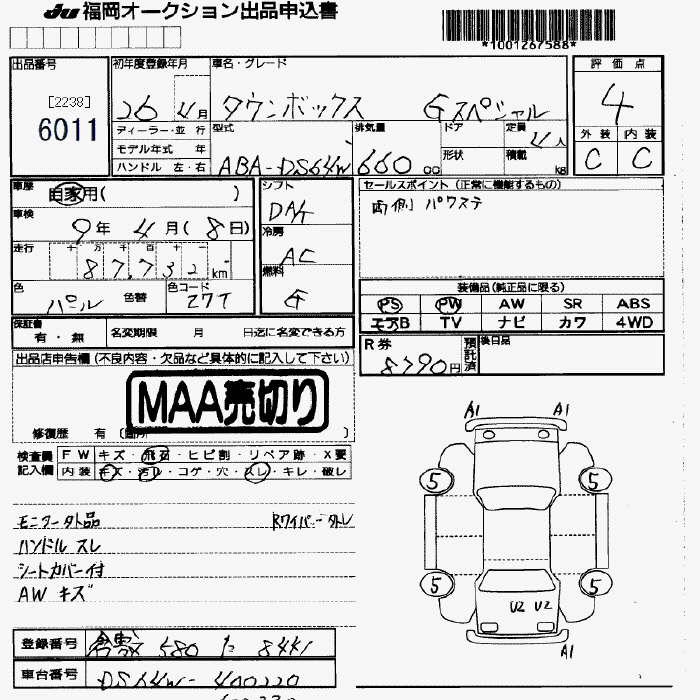 JU 福岡オークション出品申込書
*1001267588*
出品番号
[2238]
6011
初年度登録年月
26 4月
車名・グレード
タウンボックス Gスペシャル
評価点
4
外装 内装
C C
ディーラー・並 行
モデル年式 年
ハンドル 左・右
型式
ABA-DS64W
排気量
660 cc
ドア
形状
定員
4人
積載
kg
車歴
自家用( )
車検
9年 4月(8日)
走行
十 万 千 百 十 一
87,732 km
色
パール
色替
色コード
Z7T
シフト
DAT
冷房
AC
燃料
G
セールスポイント (正常に機能するもの)
両側 パワステ
装備品(純正品に限る)
PS PW AW SR ABS
エアB TV ナビ カワ 4WD
保証書
有・無
名変期限 月 日迄に名変できる方
R券
8790円
預託済
後日品
出品店申告欄(不良内容・欠品など具体的に記入して下さい)
MAA売切り
修復歴 有 (箇所 )
検査員
記入欄
FW キズ・飛石・ヒビ割・リペア跡・X要
内装 キズ・汚れ・コゲ・穴・スレ・キレ・破レ
モニター外品 Rワイパー外レ
ハンドル スレ
シートカバー付
AW キズ
A1 A1
5 5
5 5
U2 U2
A1
登録番号
倉敷 580
車台番号
DS64W-